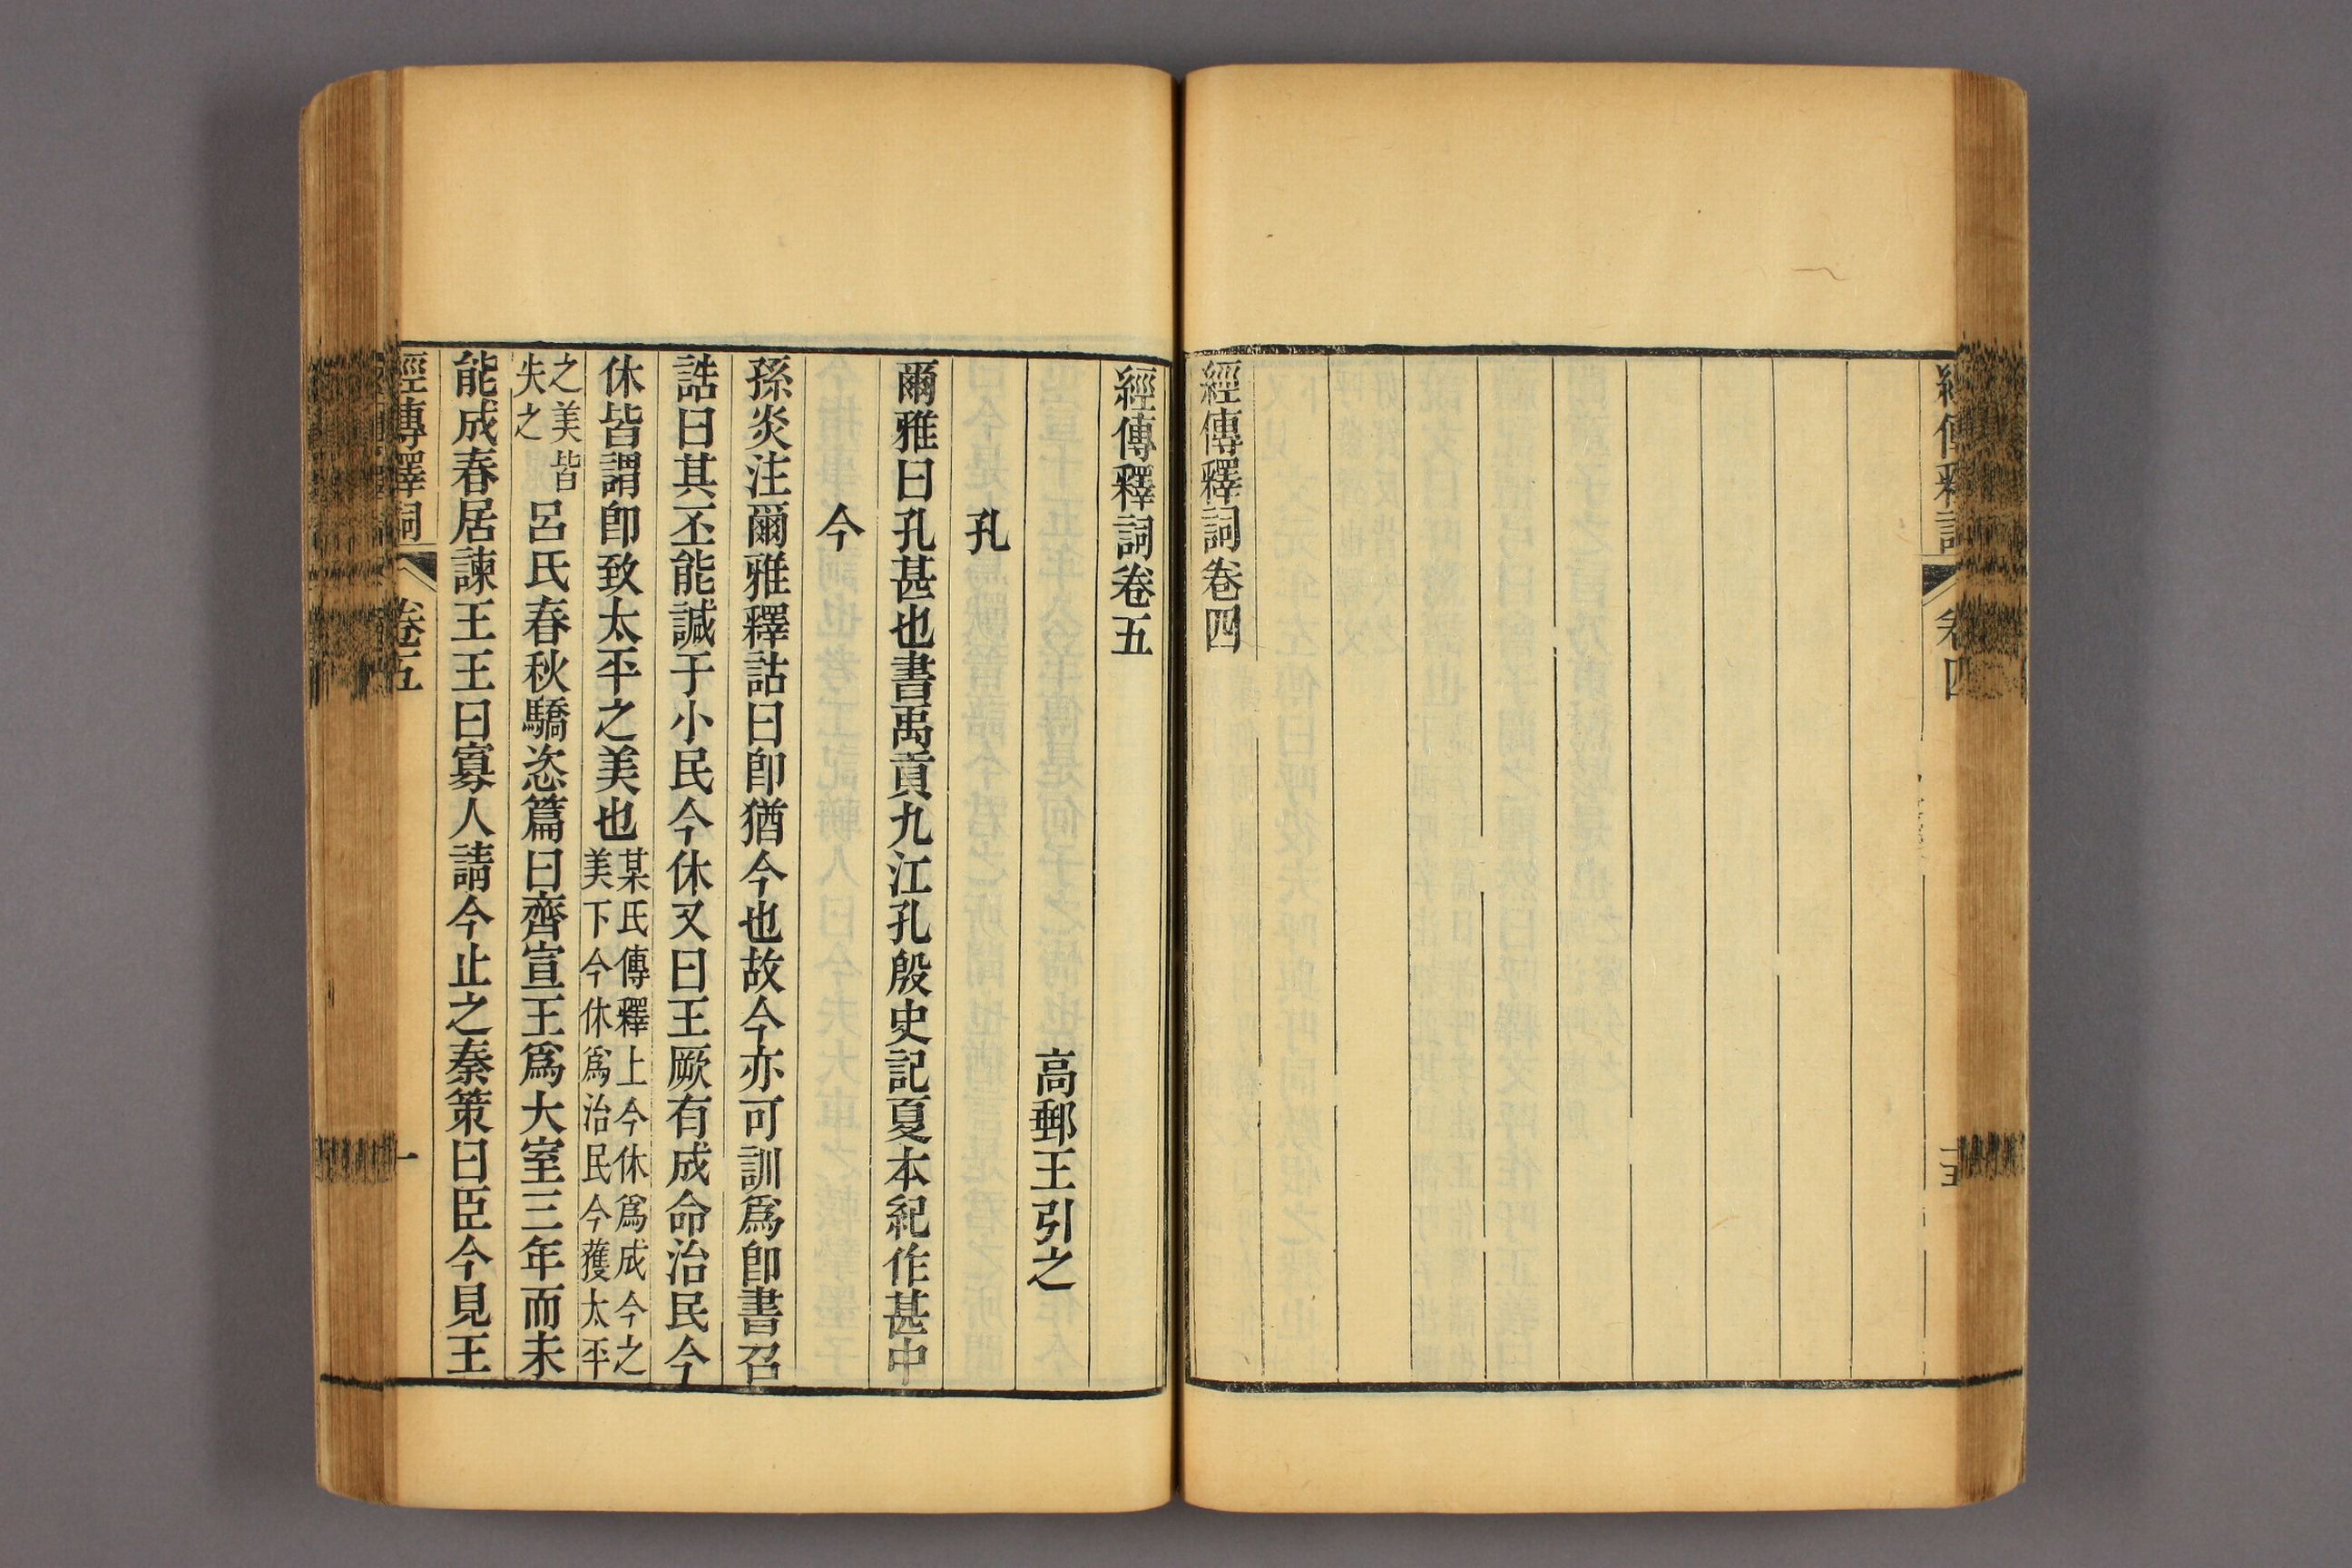 經傳釋詞
卷四
十五
經傳釋詞卷四
經傳釋詞卷五
高郵王引之
孔
爾雅曰孔甚也書禹貢九江孔殷史記夏本紀作甚中
今
孫炎注爾雅釋詁曰卽猶今也故今亦可訓爲卽書召
誥曰其丕能諴于小民今休又曰王厥有成命治民今
休皆謂卽致太平之美也某氏傳釋上今休爲成今之美下今休爲治民今獲太平
之美皆失之呂氏春秋驕恣篇曰齊宣王爲大室三年而未
能成春居諫王王曰寡人請今止之秦策曰臣今見王
經傳釋詞
卷五
一